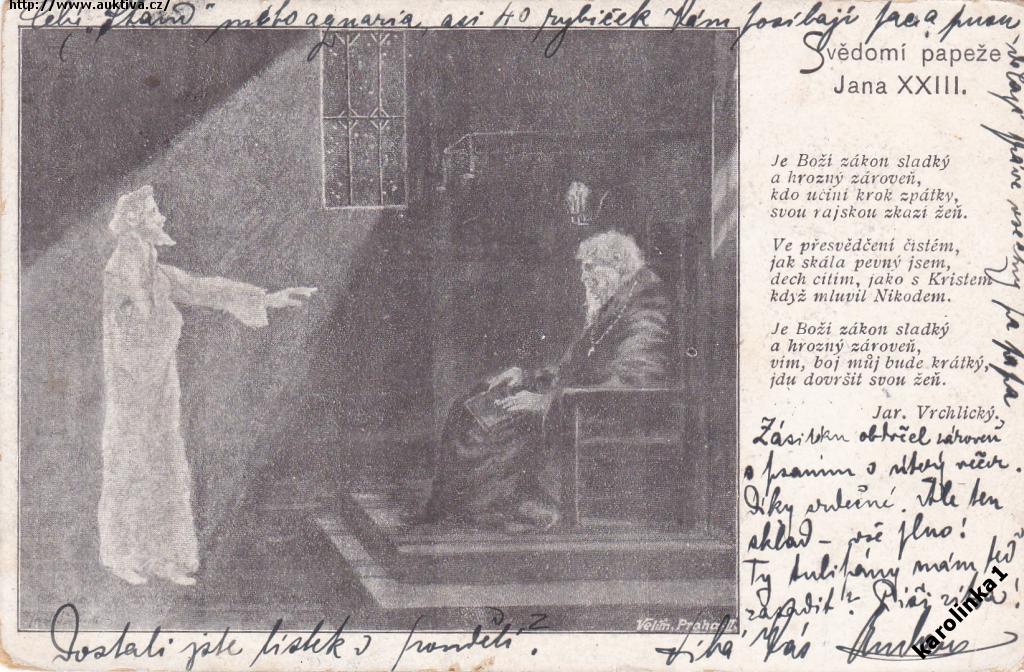 http://www.auktiva.cz/
asi 40 rybiček Vám
Svědomí papeže
Jana XXIII.
Je Boží zákon sladký
a hrozný zároveň,
kdo učiní krok zpátky,
svou rajskou zkazí žeň.
Ve přesvědčení čistém,
jak skála pevný jsem,
dech cítím, jako s Kristem
když mluvil Nikodem.
Je Boží zákon sladký
a hrozný zároveň,
vím, boj můj bude krátký,
jdu dovršit svou žeň.
Jar. Vrchlický.
Zásilku obdržel zároveň
s psaním v úterý večer.
Díky srdečné. Ale ten
sklad – vše plno!
Ty tulipány mám teď
zasadit? Piš
Dostali jste lístek v pondělí?
Líbá Vás
Velím, Praha
karolinka1